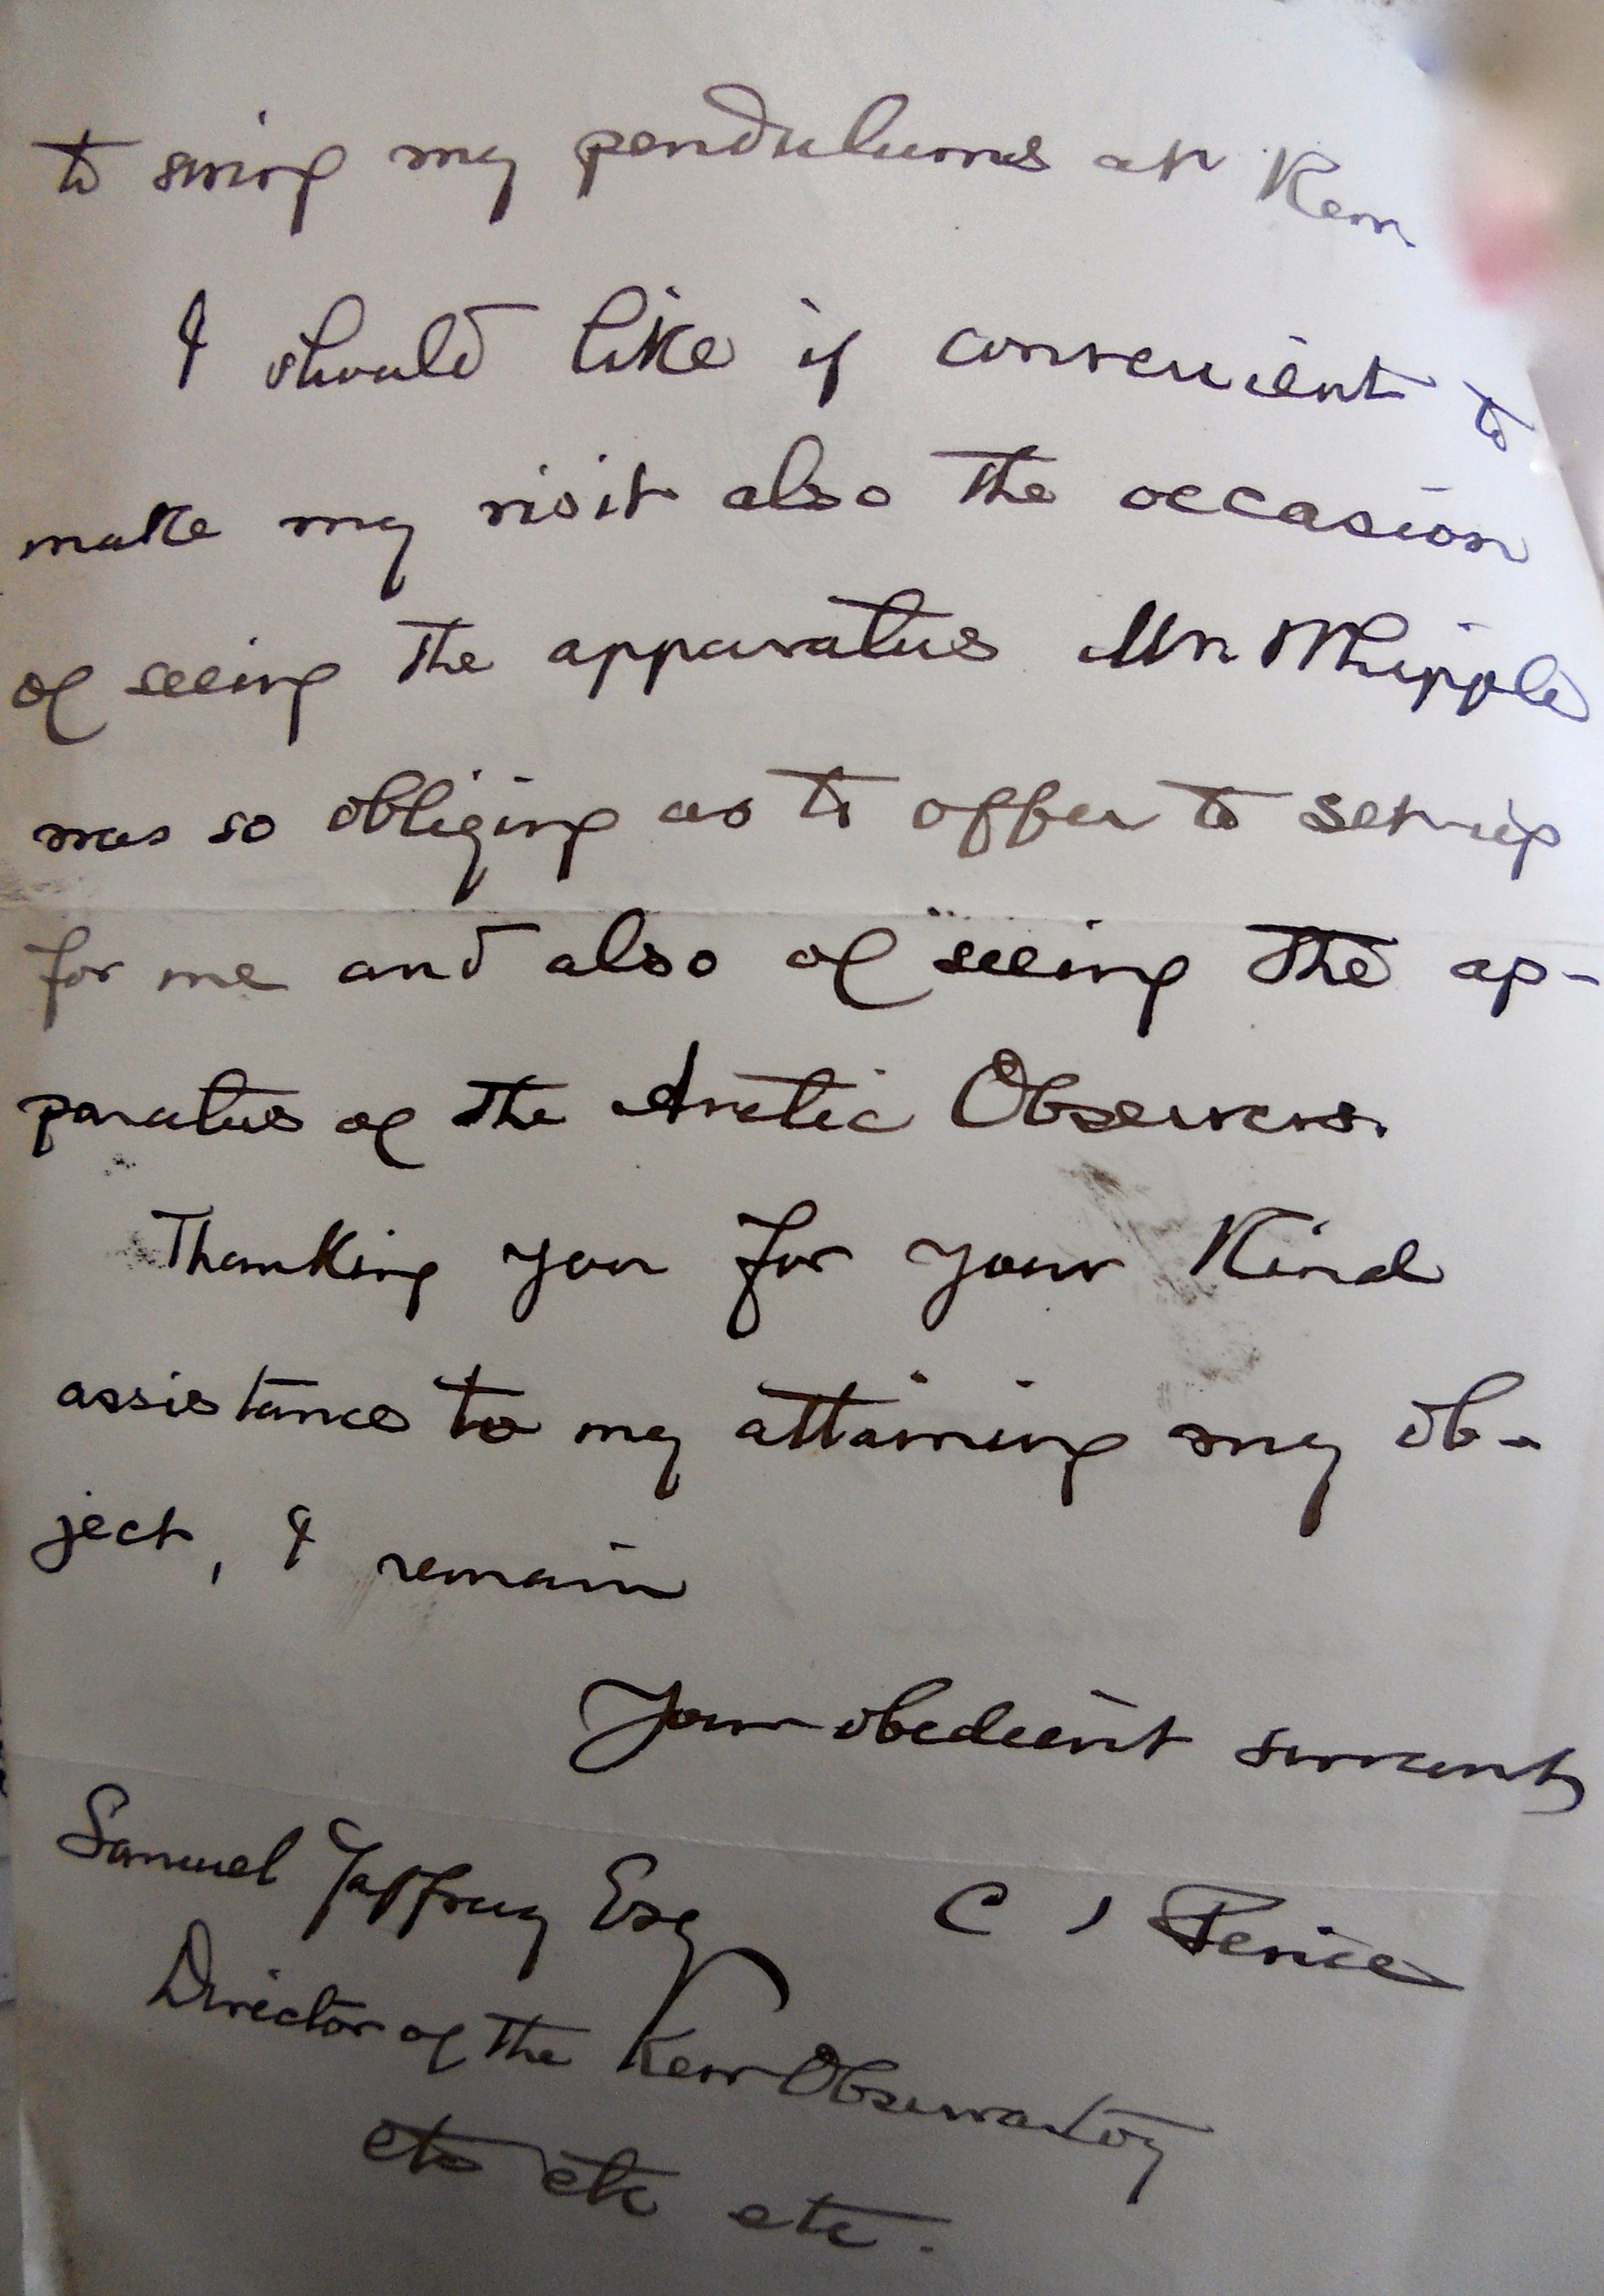 to swing my pendulums at Kew.
I should like if convenient to
make my visit also the occasion
of seeing the apparatus Mr Whipple
was so obliging as to offer to set up
for me and also of seeing the ap-
paratus of the Arctic Observers.
Thanking you for your kind
assistance to my attaining my ob-
ject, I remain
Your obedient servant
Samuel Jeffrey Esq
C S Peirce
Director of the Kew Observatory
etc etc etc.